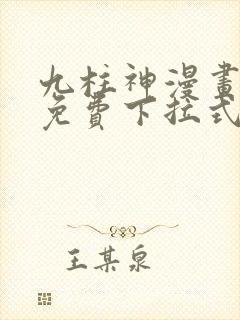 九柱神漫畫
免費下拉式
王某泉